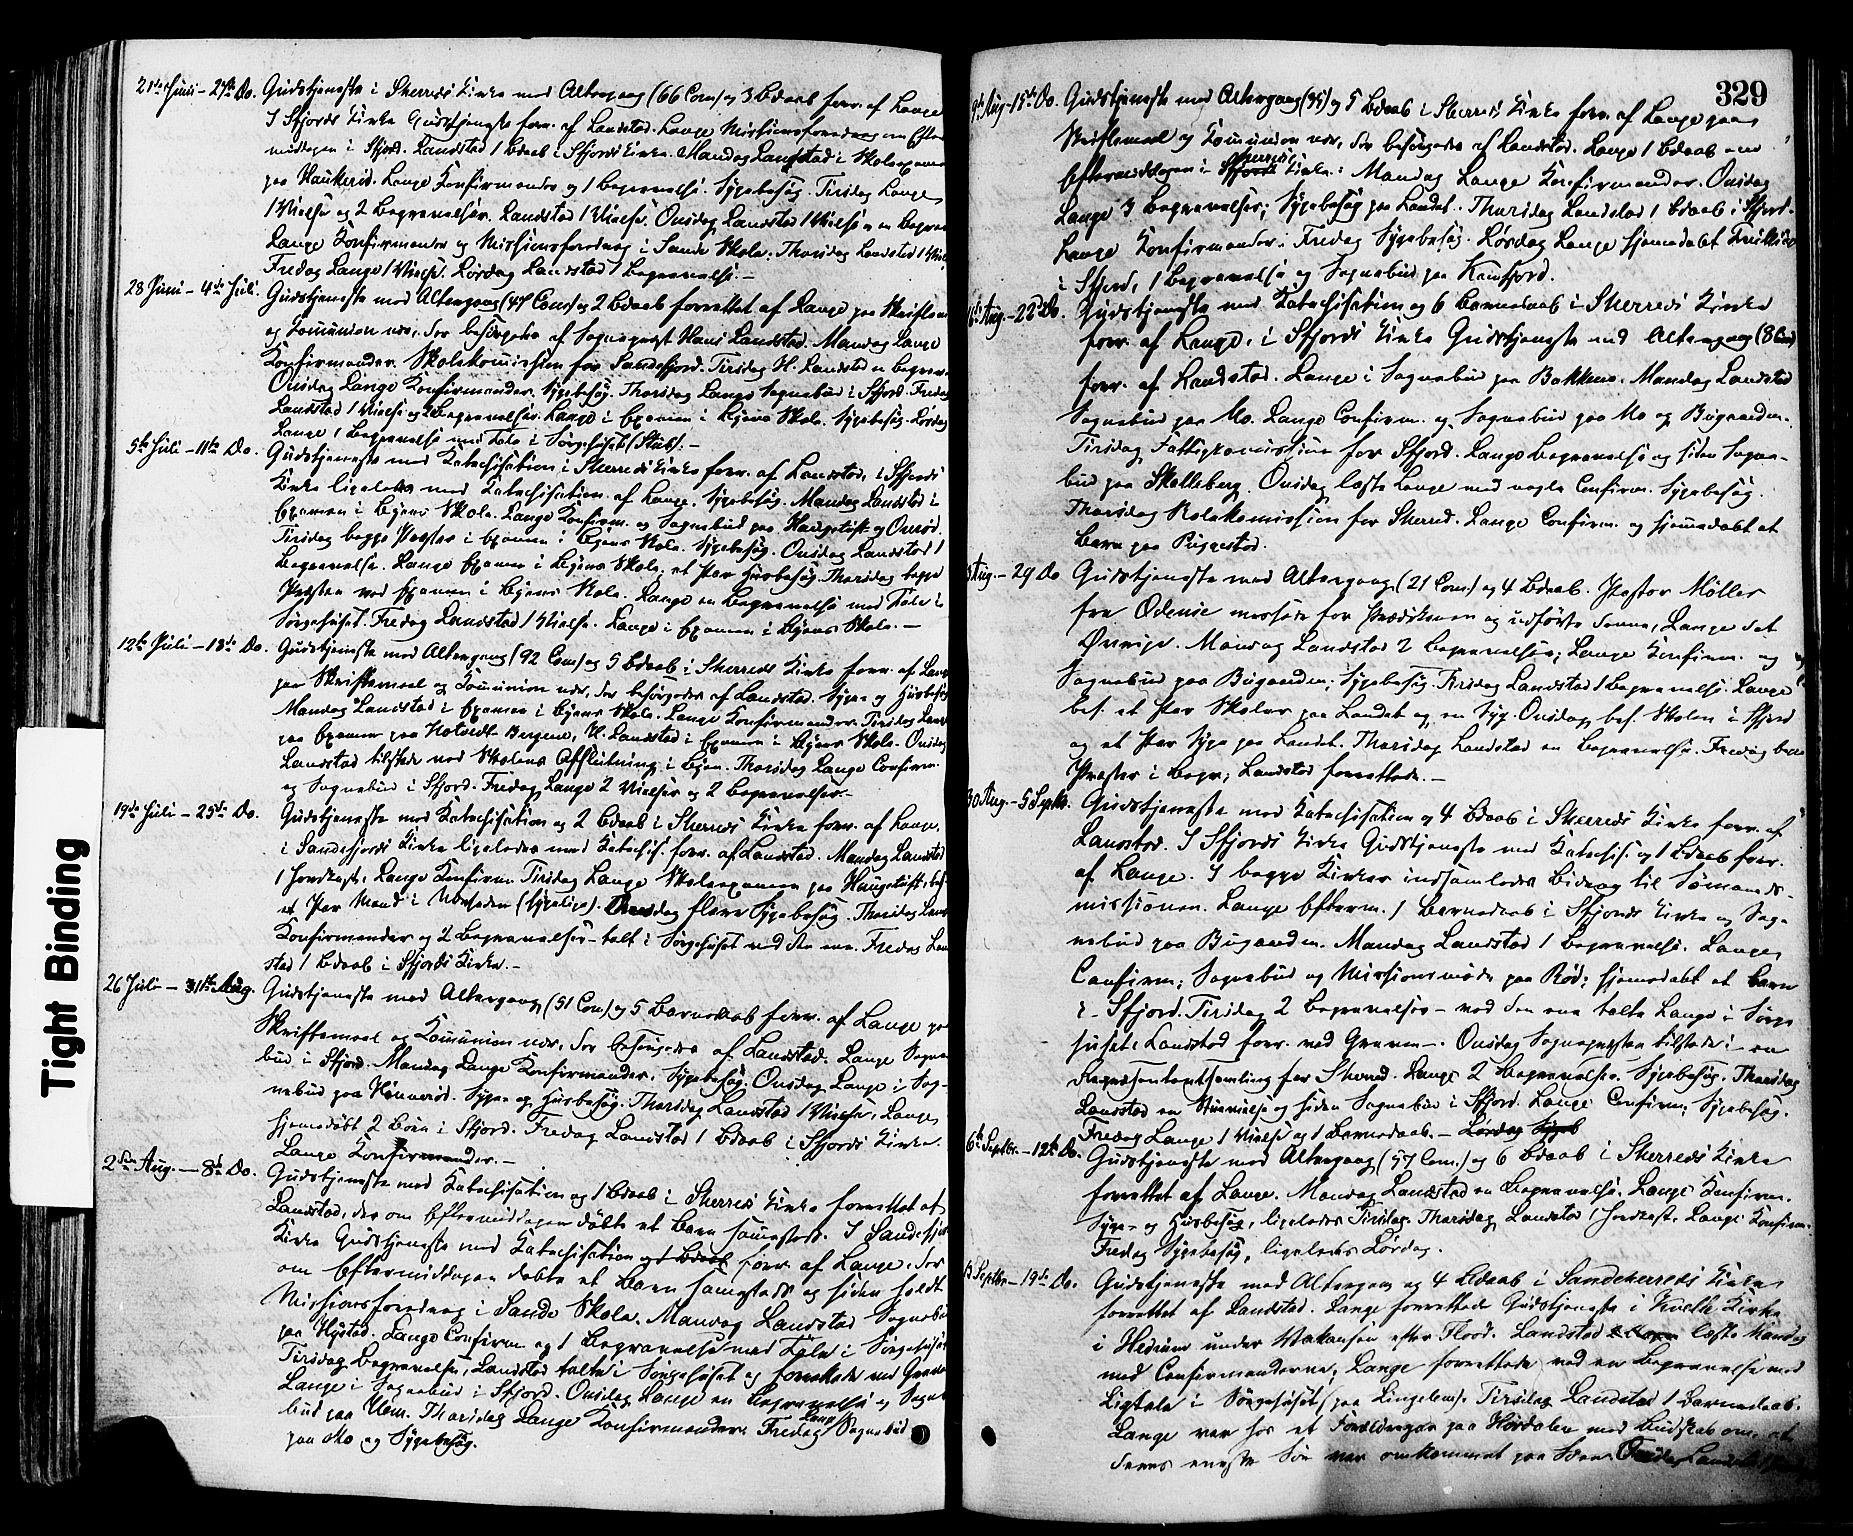 21de Juni – 27de Do. Gudstjeneste i Sherreds Kirke med Altergang (66 Com) og 3 Bdaab forr. af Lange
I Sfjords Kirke Gudstjeneste forr. af Landstad. Lange Missionsforedrag om Efter
middagen i Sfjord. Landstad 1 Bdaab i Sfjords Kirke. Mandag Landstad i Skoleexamen
paa Haukerød. Lange Konfirmander og 1 Begravelse. Sygebesøg. Tirsdag Lange
1 Vielse og 2 Begravelser. Landstad 1 Vielse. Onsdag Landstad 1 Vielse en Begrav
Lange Konfirmander og Missionsforedrag i Sande Skole. Thorsdag Landstad 1 Viel
Fredag Lange 1 Vielse. Lørdag Landstad 1 Begravelse. –
28 Juni – 4de Juli. Gudstjeneste med Altergang (47 Com) og 2 Bdaab forrettet af Lange paa Skriftem
og Communion nær, der besørgedes af Sognepræst Hans Landstad. Mandag Lange
Konfirmander. Skolekomission for Sandefjord. Tirsdag H. Landstad en Begrav
Onsdag Lange Konfirmander. Sygebesøg. Thorsdag Lange Sognebud i Sfjord. Fredag
Landstad 1 Vielse og 2 Begravelser. Lange i Examen i Byens Skole. Sygebesøg. Lørdag
Lange 1 Begravelse med Tale i Sørgehuset (Stub). –
5te Juli – 11te Do. Gudstjeneste med Katechisation i Sherreds Kirke forr. af Landstad, i Sfjords
Kirke ligeledes med Katechisation af Lange. Sygebesøg. Mandag Landstad i
Examen i Byens Skole. Lange Konfirm. og Sognebud paa Haugetuft og Ousrød.
Tirsdag begge Præster i Examen i Byens Skole. Sygebesøg. Onsdag Landstad 1
Begravelse. Lange Examen i Byens Skole, et Par Husbesøg. Thorsdag begge
Præster ved Examen i Byens Skole. Lange en Begravelse med Tale i
Sørgehuset. Fredag Landstad 1 Vielse. Lange i Examen i Byens Skole. –
12te Juli – 18de Do. Gudstjeneste med Altergang (92 Com) og 5 Bdaab i Sherreds Kirke forr. af Lange
paa Skriftemaal og Communion nær, der besørgedes af Landstad. Syge- og Husbesøg
Mandag Landstad i Examen i Byens Skole. Lange Konfirmander. Tirsdag Lange
paa Examen paa Hotvedt Bergene, H. Landstad i Examen i Byens Skole. Onsdag
Landstad tilstede ved Skolens Afslutning i Byen. Thorsdag Lange Confirm.
og Sognebud i Sfjord. Fredag Lange 2 Vielser og 2 Begravelser. –
19de Juli – 25de Do. Gudstjeneste med Katechisation og 2 Bdaab i Sherreds Kirke forr. af Lange,
i Sandefjords Kirke ligeledes med Katechis. forr. af Landstad. Mandag Landstad
1 Jordkast, Lange Konfirm. Tirsdag Lange Skoleexamen paa Haugetuft,
et Par Mand i (sygelige). Onsdag flere Sygebesøg. Thorsdag Lange
Konfirmander og 2 Begravelser – talt i Sørgehuset ved den ene. Fredag Land
stad 1 Bdaab i Sfjords Kirke. –
26 Juli – 31te Aug. Gudstjeneste med Altergang (51 Com) og 5 Barnedaab forr. af Lange paa
Skriftemaal og Communion nær, der besørgedes af Landstad. Lange Sogne
bud i Sfjord. Mandag Lange Konfirmander, Sygebesøg. Onsdag Lange i Sog-
nebud paa Hönnerød. Syge- og Husbesøg. Thorsdag Landstad 1 Vielse, Lange
hjemedøbt 2 Børn i Sfjord. Fredag Landstad 1 Bdaab i Sfjords Kirke.
Lange Konfirmander. –
2den Aug. – 8de Do. Gudstjeneste med Katechisation og 1 Bdaab i Sherreds Kirke forrettet af
Landstad, der om Eftermiddagen døbte et Barn sammesteds. I Sandefjords
Kirke Gudstjeneste med Katechisation og 1 Bdaab forr. af Lange, der
om Eftermiddagen døbte et Barn sammesteds og siden holdt
Missionsforedrag i Sande Skole. Mandag Landstad Sognebud
paa Hystad. Lange Confirm og 1 Begravelse med Tale i Sørgehuset
Tirsdag Begravelse, Landstad talte i Sørgehuset og forrettede ved Graven
Lange i Sognebud i Sfjord. Onsdag Lange en Begravelse og Sogne
bud paa Ulem. Thorsdag Lange Konfirmander. Fredag Lange Sognebud
paa Mo og Sygebesøg.
329
9de Aug – 15de Do. Gudstjeneste med Altergang (35) og 5 Bdaab i Sherreds Kirke forr. af Lange paa
Skriftemaal og Communion nær, der besørgedes af Landstad. Lange 1 Bdaab om
Eftermiddagen i Sfjords Sherreds Kirke. Mandag Lange Konfirmander. Onsdag
Lange 3 Begravelser; Sygebesøg paa Landet. Thorsdag Landstad 1 Bdaab i Sfjord.
Lange Konfirmander. Fredag Sygebesøg. Lørdag Lange hjemedøbt
i Sfjord, 1 Begravelse og Sognebud paa Kamfjord.
16de Aug. – 22de Do. Gudstjeneste med Katechisation og 6 Barnedaab i Sherreds Kirke
forr. af Lange, i Sfjords Kirke Gudstjeneste med Altergang (8 Com)
forr. af Landstad. Lange i Sognebud paa Bakkene. Mandag Landstad
Sognebud paa Mo. Lange Confirm. og Sognebud paa Mo og Bugaarden.
Tirsdag Fattigkomission for Sfjord. Lange Begravelse og siden Sogne-
bud paa Skolleberg. Onsdag læste Lange med nogle Confirm. Sygebesøg.
Thorsdag Skolekomission for Sherred. Lange Confirm. og hjemedøbt et
Barn paa Puggestad.
Aug. – 29 Do Gudstjeneste med Altergang (21 Com) og 4 Bdaab. Pastor Møller
fra Odense messede for Prædikenen og udførte denne, Lange det
Øvrige. Mandag Landstad 2 Begravelser; Lange Konfirm. og
Sognebud paa Bugaarden; Sygebesøg. Tirsdag Landstad 1 Begravelse. Lange
bes. et Par Skoler paa Landet og en Syg. Onsdag bes. Skolen i Sfjord
og et Par Syge paa Landet. Thorsdag Landstad en Begravelse. Fredag begge
Præster i Begr; Landstad forrettede. –
30 Aug. – 5 Septbr. Gudstjeneste med Katechisation og 4 Bdaab i Sherreds Kirke forr. af
Landstad. I Sfjords Kirke Gudstjeneste med Katechis. og 1 Bdaab forr.
af Lange. I begge Kirker indsamledes Bidrag til Sømands-
missionen. Lange Efterm. 1 Barnedaab i Sfjords Kirke og Sog-
nebud paa Bugaarden. Mandag Landstad 1 Begravelse. Lange
Confirm; Sognebud og Missionsmøde paa Rød; hjemedøbt et Barn
i Sfjord. Tirsdag 2 Begravelser – ved den ene talte Lange i Sørge
huset, Landstad forr. ved Graven. – Onsdag Sognepresten tilstede i en
Repræsentantsamling for Sherred. Lange 2 Begravelser. Sygebesøg. Thorsdag
Landstad en Vielse og siden Sognebud i Sfjord. Lange Confirm; Sygebesøg.
Fredag Lange 1 Vielse og 1 Barnedaab. – Lørdag Sygeb
6te Septbr. – 12te Do. Gudstjeneste med Altergang (57 Com.) og 6 Bdaab i Sherreds Kirke
forrettet af Lange. Mandag Landstad en Begravelse. Lange Konfirm.
Syge- og Husbesøg, ligeledes Tirsdag. Thorsdag Landstad 1 Jordkast. Lange Konfirm.
Fredag Sygebesøg, ligeledes Lørdag.
13 Septbr – 19de Do. Gudstjeneste med Altergang og 4 Bdaab i Sandeherreds Kirke
forrettet af Landstad. Lange forrettede Gudstjeneste i Kvelle Kirke
i Hedrum under Vakansen efter Flood. Landstad læste Mandag
med Confirmanderne; Lange forrettede ved en Begravelse med
Ligtale i Sørgehuset (paa Lingelem). Tirsdag Landstad 1 Barnedaab.
Lange var hos et Forældrepar paa Hørdalen med Budskab om, at
deres eneste Søn var omkommet paa Søen. Fredag Landstad 1
Tight Binding